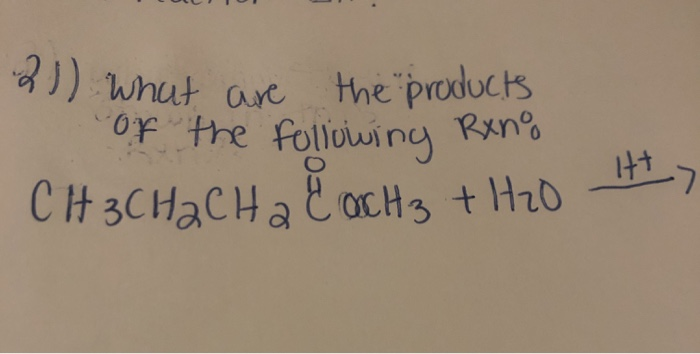 21) what are the products
of the following Rxn%
O
CH3CH2CH2COCH3 + H2O H+